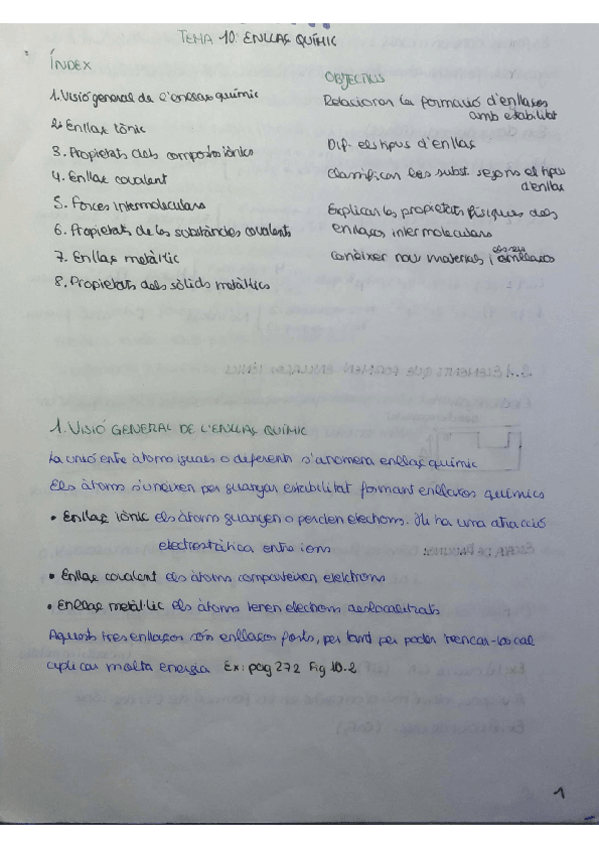 TEMA 10: ENLLAÇ QUÍMIC
ÍNDEX
1. Visió general de l'enllaç químic
2. Enllaç iònic
3. Propietats dels compostos iònics
4. Enllaç covalent
5. Forces intermoleculars
6. Propietats de les substàncies covalents
7. Enllaç metàl·lic
8. Propietats dels sòlids metàl·lics
OBJECTIUS
Relacionar la formació d'enllaços
amb estabilitat
Dif. els tipus d'enllaç
Classificar les subst. segons el tipus
d'enllaç
Explicar les propietats físiques dels
enllaços intermoleculars
Conèixer nous materials i
1. VISIÓ GENERAL DE L'ENLLAÇ QUÍMIC
La unió entre àtoms iguals o diferents s'anomena enllaç químic
Els àtoms s'uneixen per guanyar estabilitat formant enllaços químics
• Enllaç iònic els àtoms guanyen o perden electrons. Hi ha una atracció
electrostàtica entre ions
• Enllaç covalent els àtoms comparteixen electrons
• Enllaç metàl·lic els àtoms tenen electrons deslocalitzats
Aquests tres enllaços són enllaços forts, per tant per poder trencar-los cal
aplicar molta energia Ex: pag 272 Fig 10.2
1